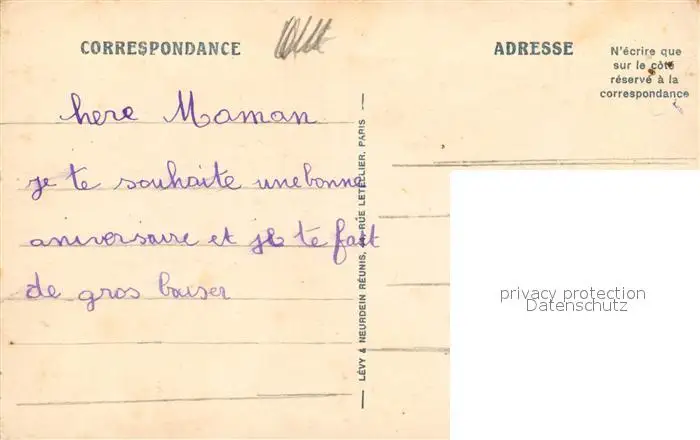 CORRESPONDANCE
ADRESSE
N'écrire que
sur le côté
réservé à la
correspondance
here Maman
je te souhaite une bonne
aniversaire et je te fait
de gros baiser
LÉVY & NEURDEIN RÉUNIS, RUE LETELLIER, PARIS
privacy protection
Datenschutz